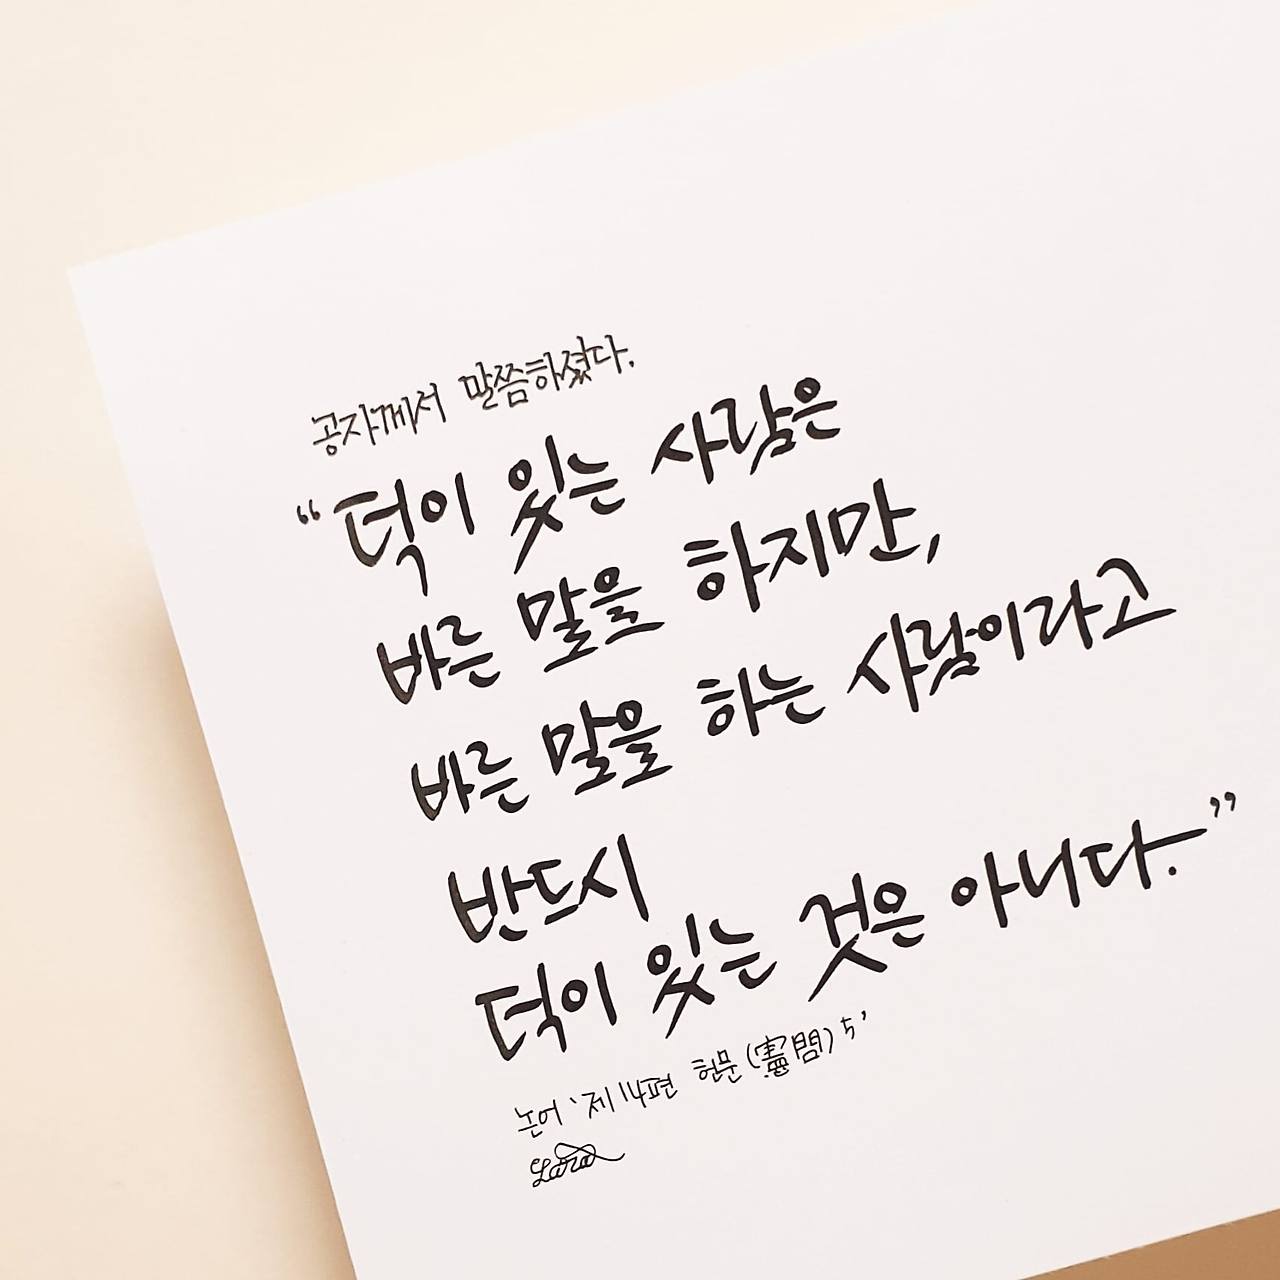 공자께서 말씀하셨다.
“덕이 있는 사람은
바른 말을 하지만,
바른 말을 하는 사람이라고
반드시
덕이 있는 것은 아니다.”
논어 '제14편 헌문(憲問) 5'
Lara